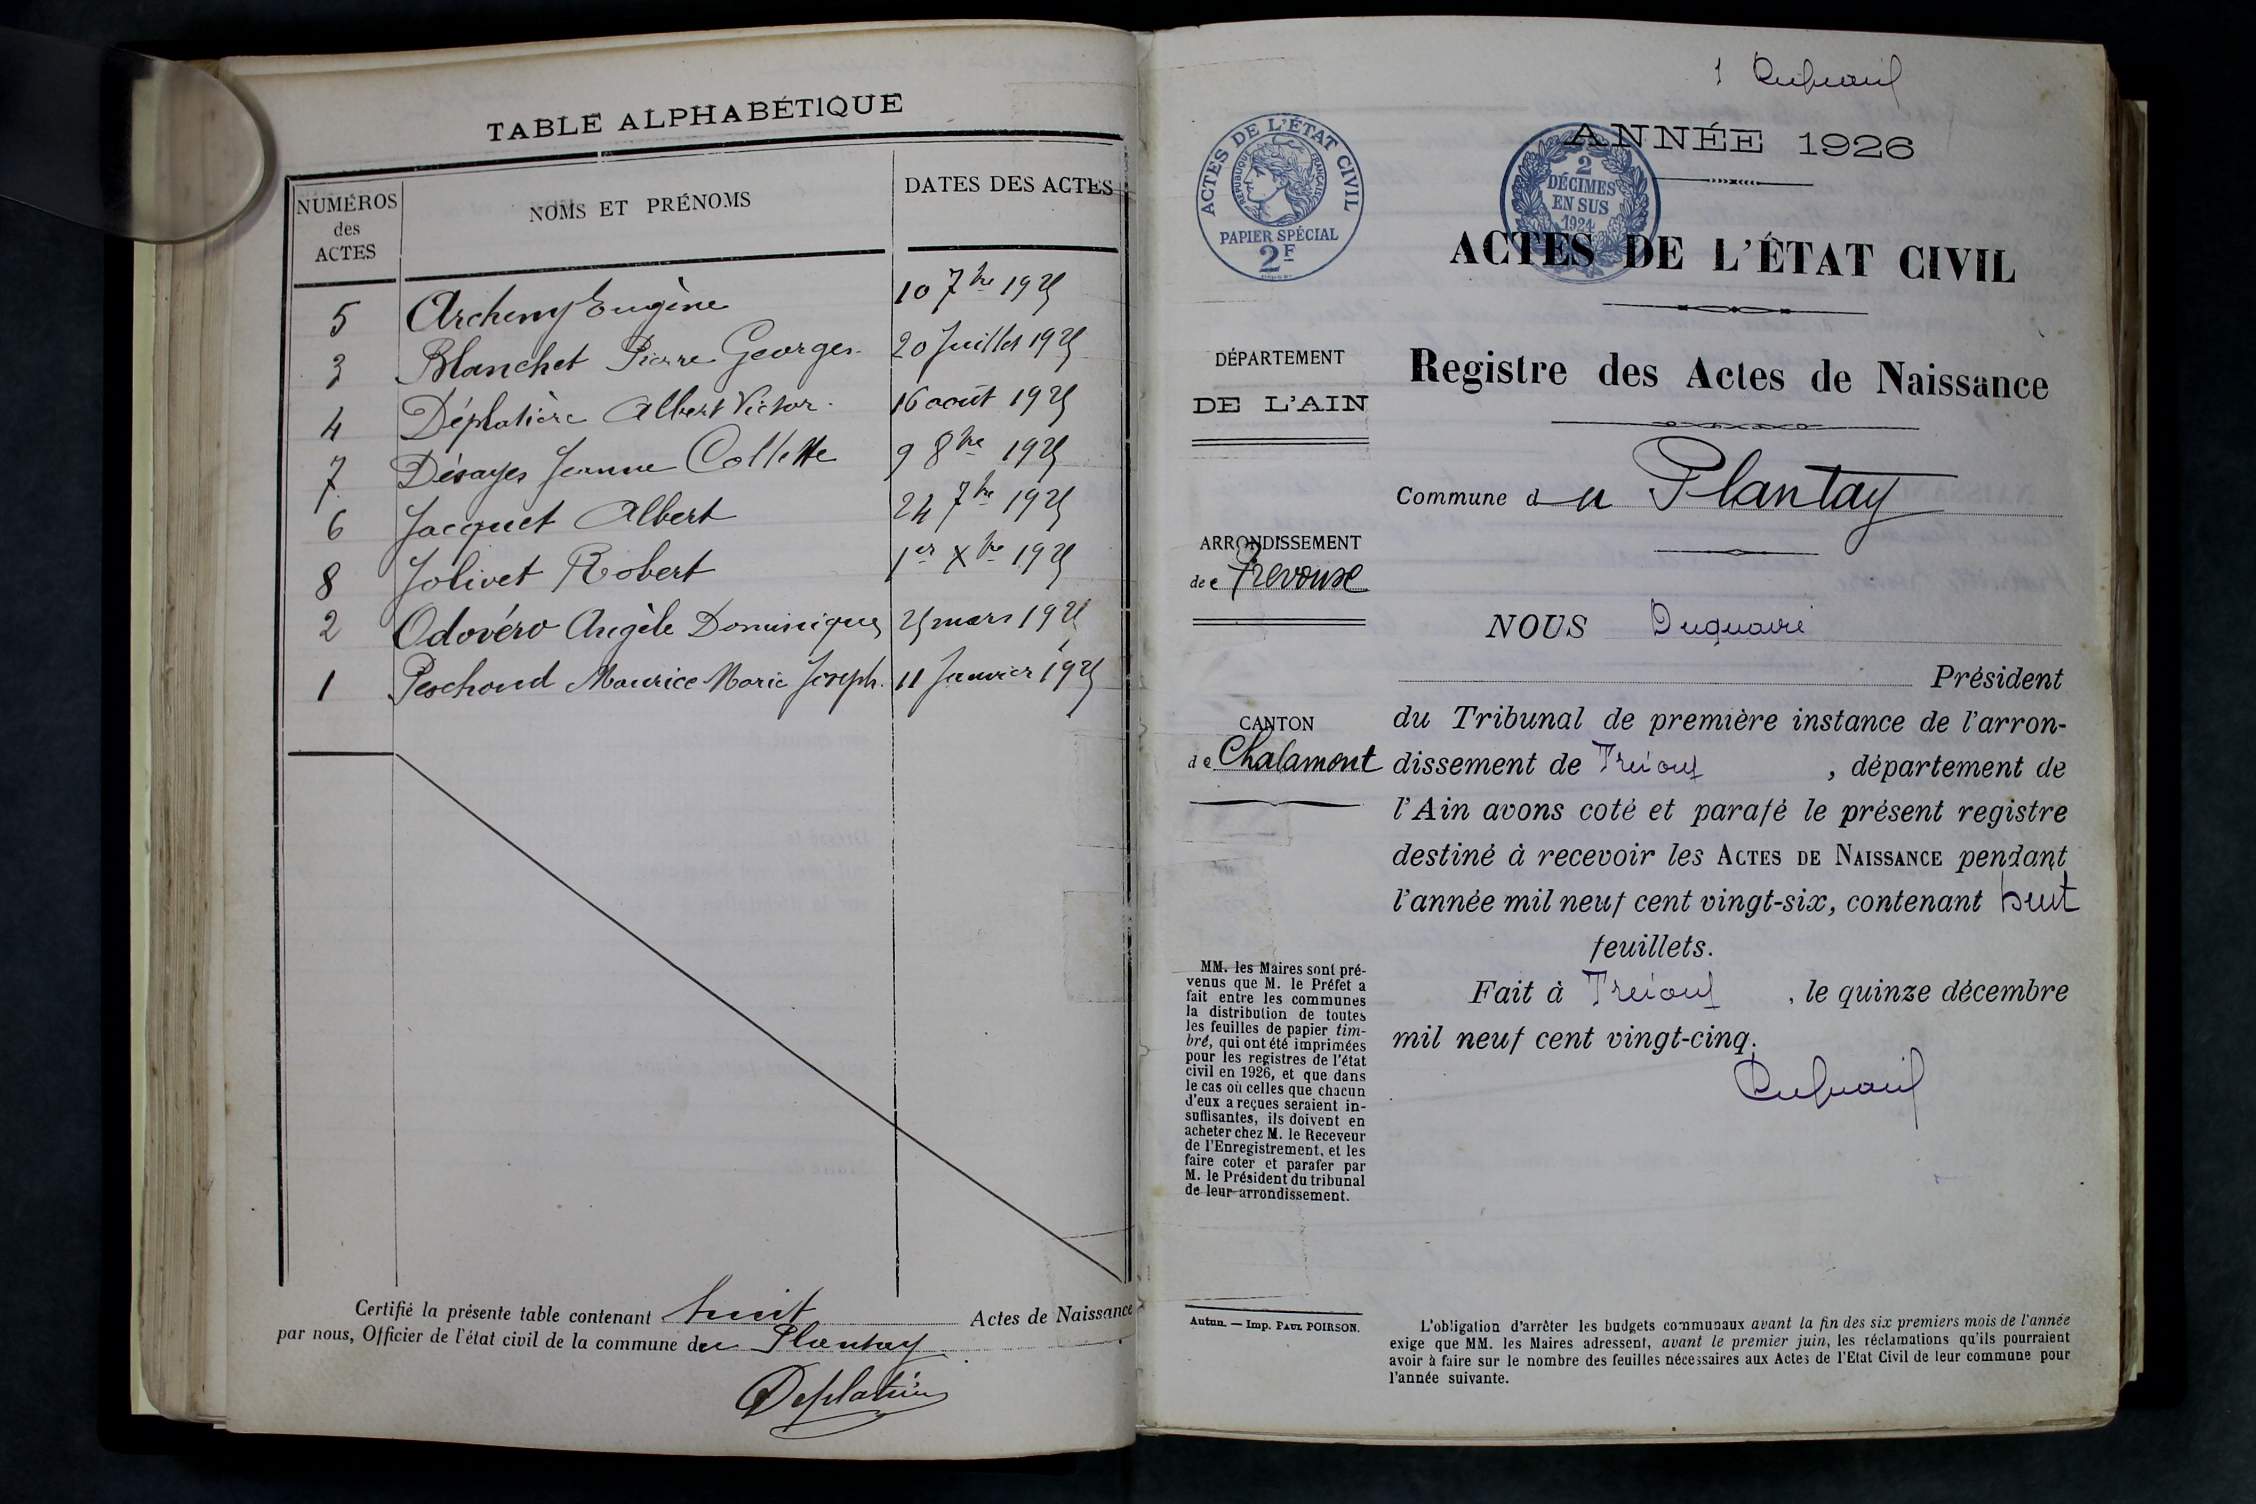 TABLE ALPHABÉTIQUE
NUMÉROS des ACTES NOMS ET PRÉNOMS DATES DES ACTES
5 Archeny Eugène 10 7bre 1925
3 Blanchet Pierre Georges 20 Juillet 1925
4 Déplatière Albert Victor. 16 août 1925
7 Désayes Jeanne Collette 9 8bre 1925
6 Jacquet Albert 24 7bre 1925
8 Jolivet Robert 1er Xbre 1925
2 Odovéro Angèle Dominique 25 mars 1925
1 Pochoud Maurice Marie Joseph. 11 Janvier 1925
Certifié la présente table contenant huit Actes de Naissance
par nous, Officier de l'état civil de la commune du Plantay
Deplatière
1 Duquaire
ACTES DE L'ÉTAT CIVIL
RÉPUBLIQUE FRANÇAISE
PAPIER SPÉCIAL
2F
2
DÉCIMES
EN SUS
1921
ANNÉE 1926
ACTES DE L'ÉTAT CIVIL
Registre des Actes de Naissance
Commune du Plantay
DÉPARTEMENT
DE L'AIN
ARRONDISSEMENT
de Trévoux
CANTON
de Chalamont
MM. les Maires sont pré-
venus que M. le Préfet a
fait entre les communes
la distribution de toutes
les feuilles de papier tim-
bré, qui ont été imprimées
pour les registres de l'état
civil en 1926, et que dans
le cas où celles que chacun
d'eux a reçues seraient in-
suffisantes, ils doivent en
acheter chez M. le Receveur
de l'Enregistrement, et les
faire coter et parafer par
M. le Président du tribunal
de leur arrondissement.
Autun. — Imp. PAUL POIRSON.
NOUS Duquaire
Président
du Tribunal de première instance de l'arron-
dissement de Trévoux, département de
l'Ain avons coté et parafé le présent registre
destiné à recevoir les ACTES DE NAISSANCE pendant
l'année mil neuf cent vingt-six, contenant huit
feuillets.
Fait à Trévoux, le quinze décembre
mil neuf cent vingt-cinq.
Duquaire
L'obligation d'arrêter les budgets communaux avant la fin des six premiers mois de l'année
exige que MM. les Maires adressent, avant le premier juin, les réclamations qu'ils pourraient
avoir à faire sur le nombre des feuilles nécessaires aux Actes de l'Etat Civil de leur commune pour
l'année suivante.